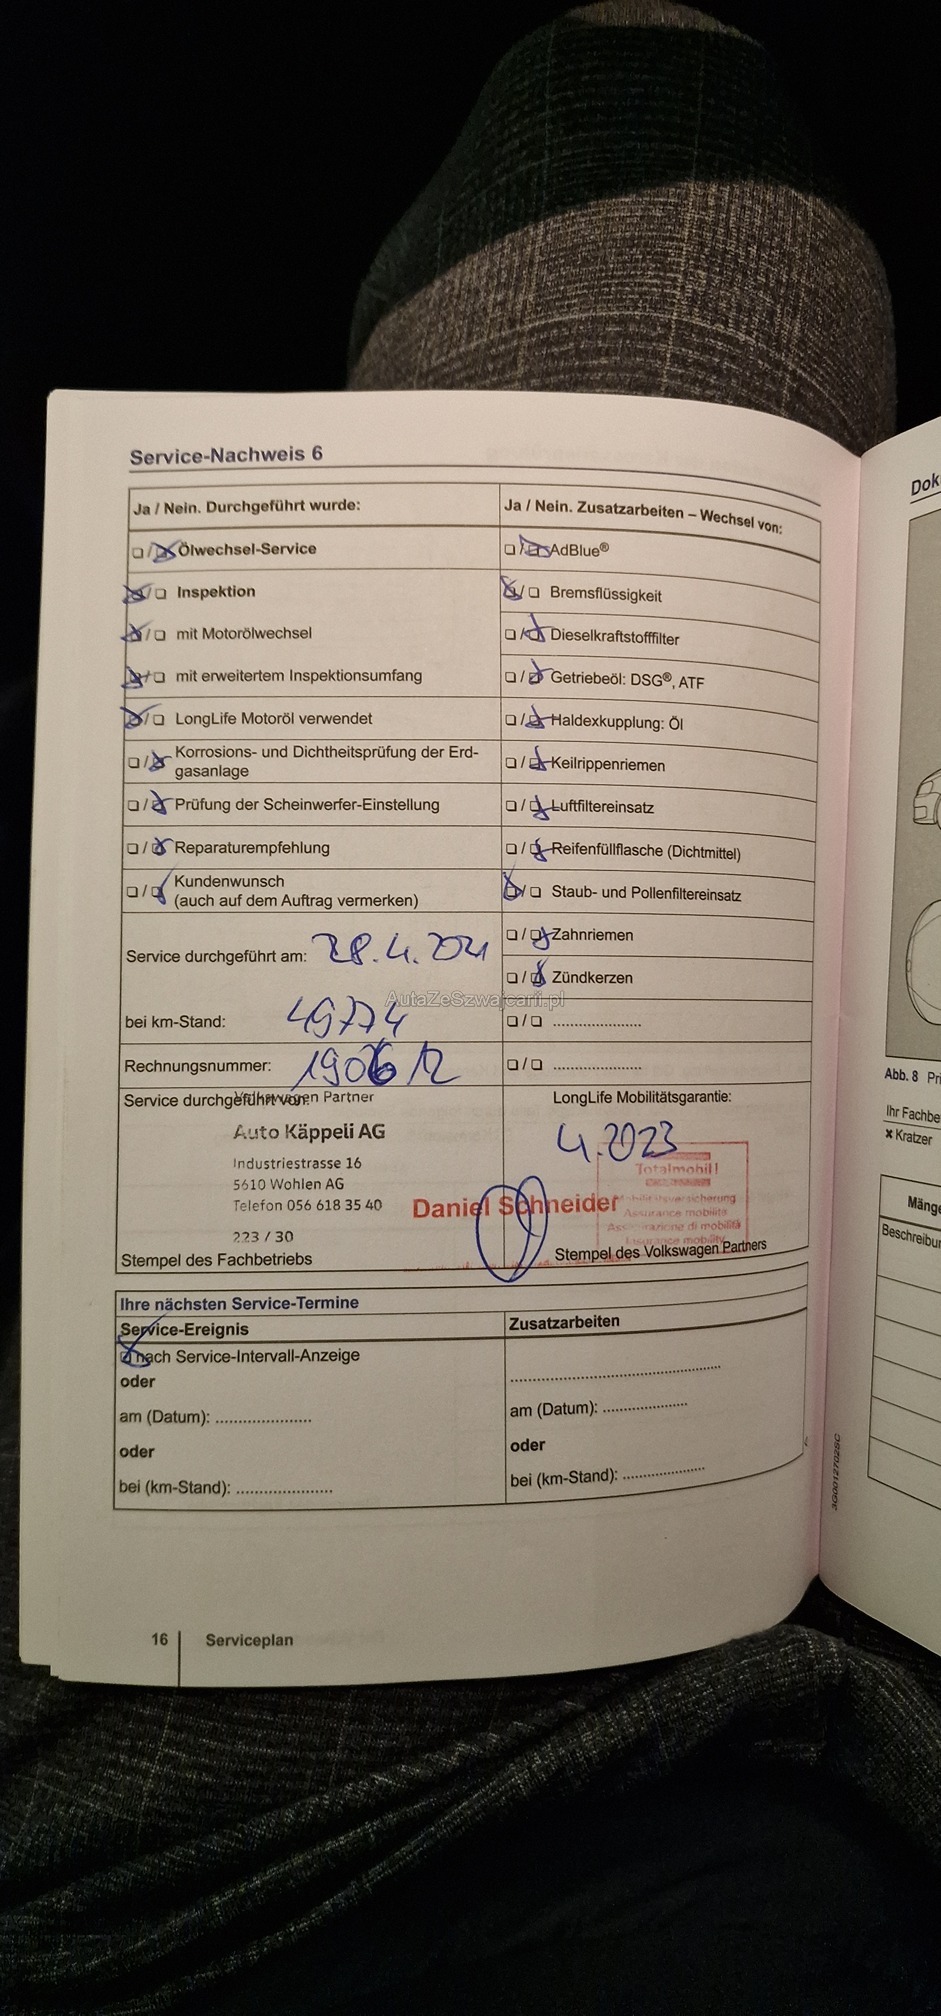 Service-Nachweis 6
Ja / Nein. Durchgeführt wurde:
☐/☒ Ölwechsel-Service
☒/☐ Inspektion
☒/☐ mit Motorölwechsel
☒/☐ mit erweitertem Inspektionsumfang
☒/☐ LongLife Motoröl verwendet
☐/☒ Korrosions- und Dichtheitsprüfung der Erd-
gasanlage
☐/☒ Prüfung der Scheinwerfer-Einstellung
☐/☒ Reparaturempfehlung
☐/☒ Kundenwunsch
(auch auf dem Auftrag vermerken)
Service durchgeführt am: 28.4.2021
bei km-Stand: 49774
Rechnungsnummer: 190612
Service durchgeführt von:
Volkswagen Partner
Auto Käppeli AG
Industriestrasse 16
5610 Wohlen AG
Telefon 056 618 35 40
223 / 30
Stempel des Fachbetriebs
Ja / Nein. Zusatzarbeiten – Wechsel von:
☐/☒ AdBlue®
☒/☐ Bremsflüssigkeit
☐/☒ Dieselkraftstofffilter
☐/☒ Getriebeöl: DSG®, ATF
☐/☒ Haldexkupplung: Öl
☐/☒ Keilrippenriemen
☐/☒ Luftfiltereinsatz
☐/☒ Reifenfüllflasche (Dichtmittel)
☒/☐ Staub- und Pollenfiltereinsatz
☐/☒ Zahnriemen
☐/☒ Zündkerzen
☐/☐ ......................
☐/☐ ......................
LongLife Mobilitätsgarantie:
4.2023
Totalmobil!
Mobilitätsversicherung
Assurance mobilité
Assicurazione di mobilità
Insurance mobility
Daniel Schneider
Stempel des Volkswagen Partners
AutaZeSzwajcarii.pl
Ihre nächsten Service-Termine
Service-Ereignis
☒ nach Service-Intervall-Anzeige
oder
am (Datum): ......................
oder
bei (km-Stand): ......................
Zusatzarbeiten
......................
am (Datum): ......................
oder
bei (km-Stand): ......................
16 Serviceplan
3G0012702SC
Dok
Abb. 8 Pri
Ihr Fachbe
× Kratzer
Mänge
Beschreibun